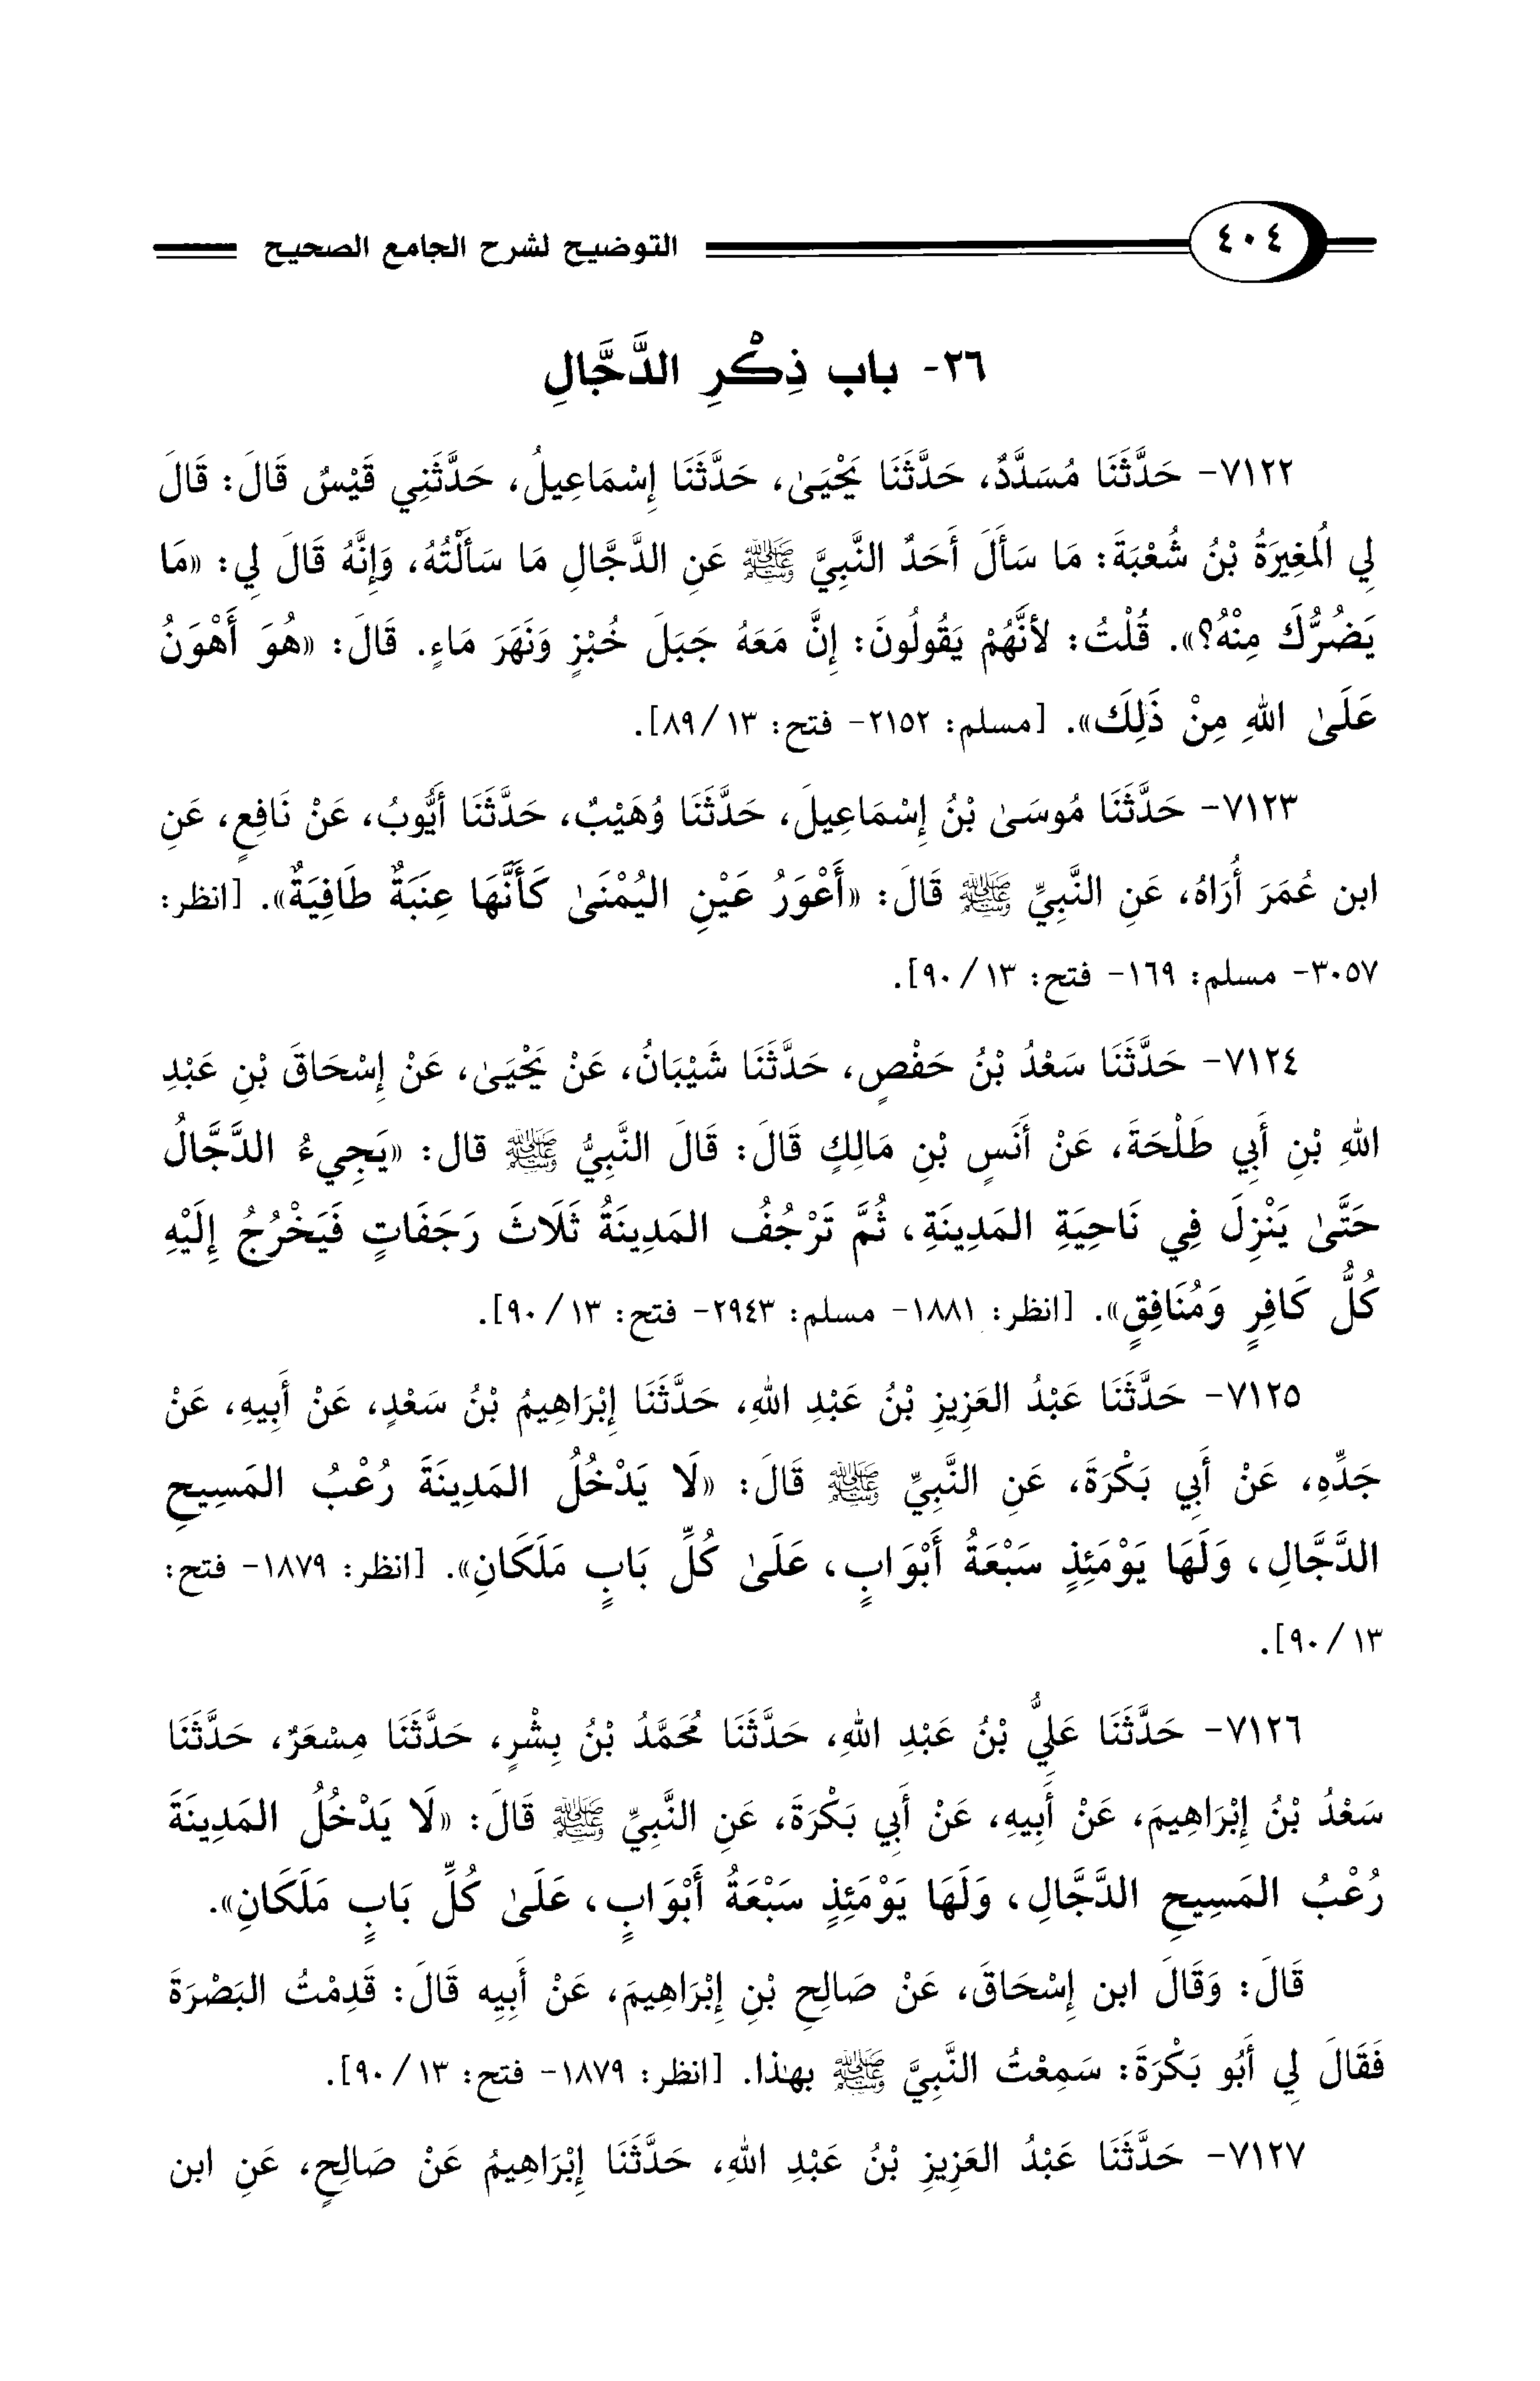 ٤٠٤
التوضيح لشرح الجامع الصحيح
٢٦- باب ذِكْرِ الدَّجَّالِ
٧١٢٢- حَدَّثَنَا مُسَدَّدٌ، حَدَّثَنَا يَحْيَىٰ، حَدَّثَنَا إِسْمَاعِيلُ، حَدَّثَنِي قَيْسٌ قَالَ: قَالَ
لِي الُمغِيرَةُ بْنُ شُعْبَةَ: مَا سَأَلَ أَحَدٌ النَّبِيَّ ﷺ عَنِ الدَّجَّالِ مَا سَأَلْتُهُ، وَإِنَّهُ قَالَ لِي: «مَا
يَضُرُّكَ مِنْهُ؟». قُلْتُ: لأَنَّهُمْ يَقُولُونَ: إِنَّ مَعَهُ جَبَلَ خُبْزٍ وَنَهَرَ مَاءٍ. قَالَ: «هُوَ أَهْوَنُ
عَلَىٰ اللهِ مِنْ ذَلِكَ». [مسلم: ٢١٥٢- فتح: ١٣/ ٨٩].
٧١٢٣- حَدَّثَنَا مُوسَىٰ بْنُ إِسْمَاعِيلَ، حَدَّثَنَا وُهَيْبٌ، حَدَّثَنَا أَيُّوبُ، عَنْ نَافِعٍ، عَنِ
ابن عُمَرَ أُرَاهُ، عَنِ النَّبِيِّ ﷺ قَالَ: «أَعْوَرُ عَيْنِ اليُمْنَىٰ كَأَنَّهَا عِنَبَةٌ طَافِيَةٌ». [انظر:
٣٠٥٧- مسلم: ١٦٩- فتح: ١٣/ ٩٠].
٧١٢٤- حَدَّثَنَا سَعْدُ بْنُ حَفْصٍ، حَدَّثَنَا شَيْبَانُ، عَنْ يَحْيَىٰ، عَنْ إِسْحَاقَ بْنِ عَبْدِ
اللهِ بْنِ أَبِي طَلْحَةَ، عَنْ أَنَسِ بْنِ مَالِكٍ قَالَ: قَالَ النَّبِيُّ ﷺ قال: «يَجِيءُ الدَّجَّالُ
حَتَّىٰ يَنْزِلَ فِي نَاحِيَةِ المَدِينَةِ، ثُمَّ تَرْجُفُ المَدِينَةُ ثَلَاثَ رَجَفَاتٍ فَيَخْرُجُ إِلَيْهِ
كُلُّ كَافِرٍ وَمُنَافِقٍ». [انظر: ١٨٨١- مسلم: ٢٩٤٣- فتح: ١٣/ ٩٠].
٧١٢٥- حَدَّثَنَا عَبْدُ العَزِيزِ بْنُ عَبْدِ اللهِ، حَدَّثَنَا إِبْرَاهِيمُ بْنُ سَعْدٍ، عَنْ أَبِيهِ، عَنْ
جَدِّهِ، عَنْ أَبِي بَكْرَةَ، عَنِ النَّبِيِّ ﷺ قَالَ: «لَا يَدْخُلُ المَدِينَةَ رُعْبُ المَسِيحِ
الدَّجَّالِ، وَلَهَا يَوْمَئِذٍ سَبْعَةُ أَبْوَابٍ، عَلَىٰ كُلِّ بَابٍ مَلَكَانِ». [انظر: ١٨٧٩- فتح:
١٣/ ٩٠].
٧١٢٦- حَدَّثَنَا عَلِيُّ بْنُ عَبْدِ اللهِ، حَدَّثَنَا مُحَمَّدُ بْنُ بِشْرٍ، حَدَّثَنَا مِسْعَرٌ، حَدَّثَنَا
سَعْدُ بْنُ إِبْرَاهِيمَ، عَنْ أَبِيهِ، عَنْ أَبِي بَكْرَةَ، عَنِ النَّبِيِّ ﷺ قَالَ: «لَا يَدْخُلُ المَدِينَةَ
رُعْبُ المَسِيحِ الدَّجَّالِ، وَلَهَا يَوْمَئِذٍ سَبْعَةُ أَبْوَابٍ، عَلَىٰ كُلِّ بَابٍ مَلَكَانِ».
قَالَ: وَقَالَ ابن إِسْحَاقَ، عَنْ صَالِحِ بْنِ إِبْرَاهِيمَ، عَنْ أَبِيِه قَالَ: قَدِمْتُ البَصْرَةَ
فَقَالَ لِي أَبُو بَكْرَةَ: سَمِعْتُ النَّبِيَّ ﷺ بهٰذا. [انظر: ١٨٧٩- فتح: ١٣/ ٩٠].
٧١٢٧- حَدَّثَنَا عَبْدُ العَزِيزِ بْنُ عَبْدِ اللهِ، حَدَّثَنَا إِبْرَاهِيمُ عَنْ صَالِحٍ، عَنِ ابن